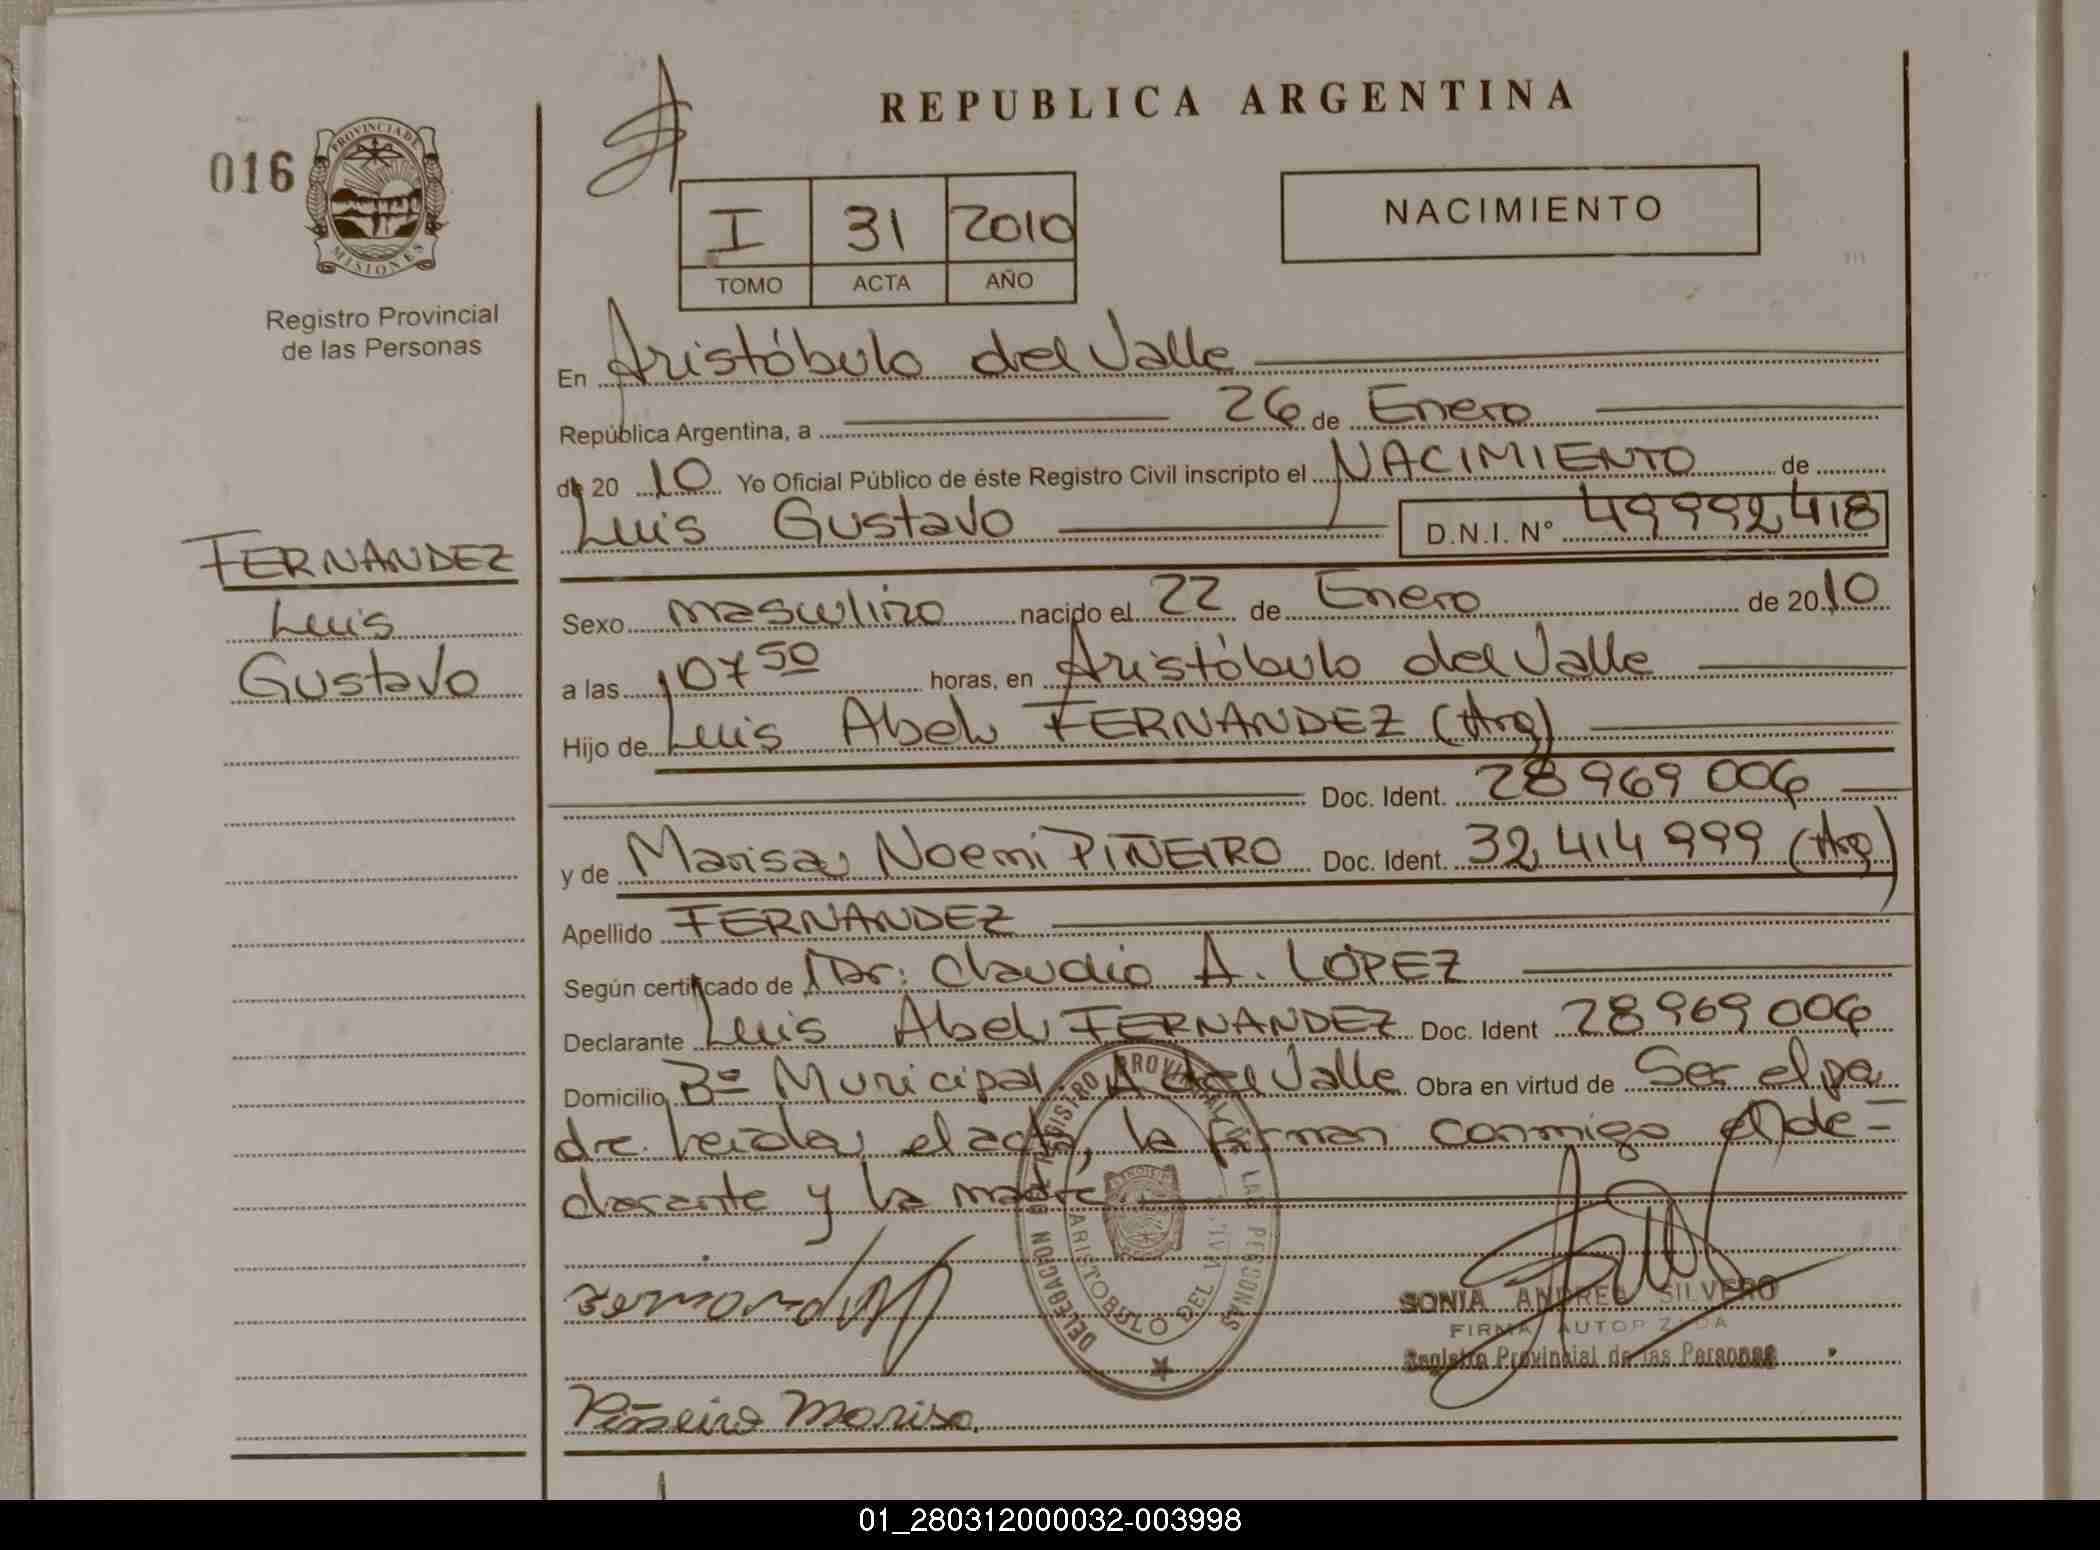 REPUBLICA ARGENTINA
016
PROVINCIA DE
MISIONES
Registro Provincial
de las Personas
I 31 2010
TOMO ACTA AÑO
NACIMIENTO
En Aristóbulo del Valle
República Argentina, a 26 de Enero
de 20 10 Yo Oficial Público de éste Registro Civil inscripto el NACIMIENTO de
Luis Gustavo D.N.I. N° 49992418
FERNANDEZ
Luis
Gustavo
Sexo masculino nacido el 22 de Enero de 20 10
a las 07 50 horas, en Aristóbulo del Valle
Hijo de Luis Abel FERNANDEZ (Arg)
Doc. Ident. 28969006
y de Marisa Noemi PIÑEIRO Doc. Ident. 32414999 (Arg)
Apellido FERNANDEZ
Según certificado de Dr: Claudio A. LOPEZ
Declarante Luis Abel FERNANDEZ Doc. Ident 28969006
Domicilio Bº Municipal A del Valle Obra en virtud de Ser el pa
dre. Leida el acta, la firman conmigo el de=
clarante y la madre
REGISTRO PROVINCIAL DE LAS PERSONAS
DELEGACION
ARISTOBULO DEL VALLE
SONIA ANDREA SILVERO
FIRMA AUTORIZADA
Registro Provincial de las Personas
Piñeiro Marisa
01_280312000032-003998